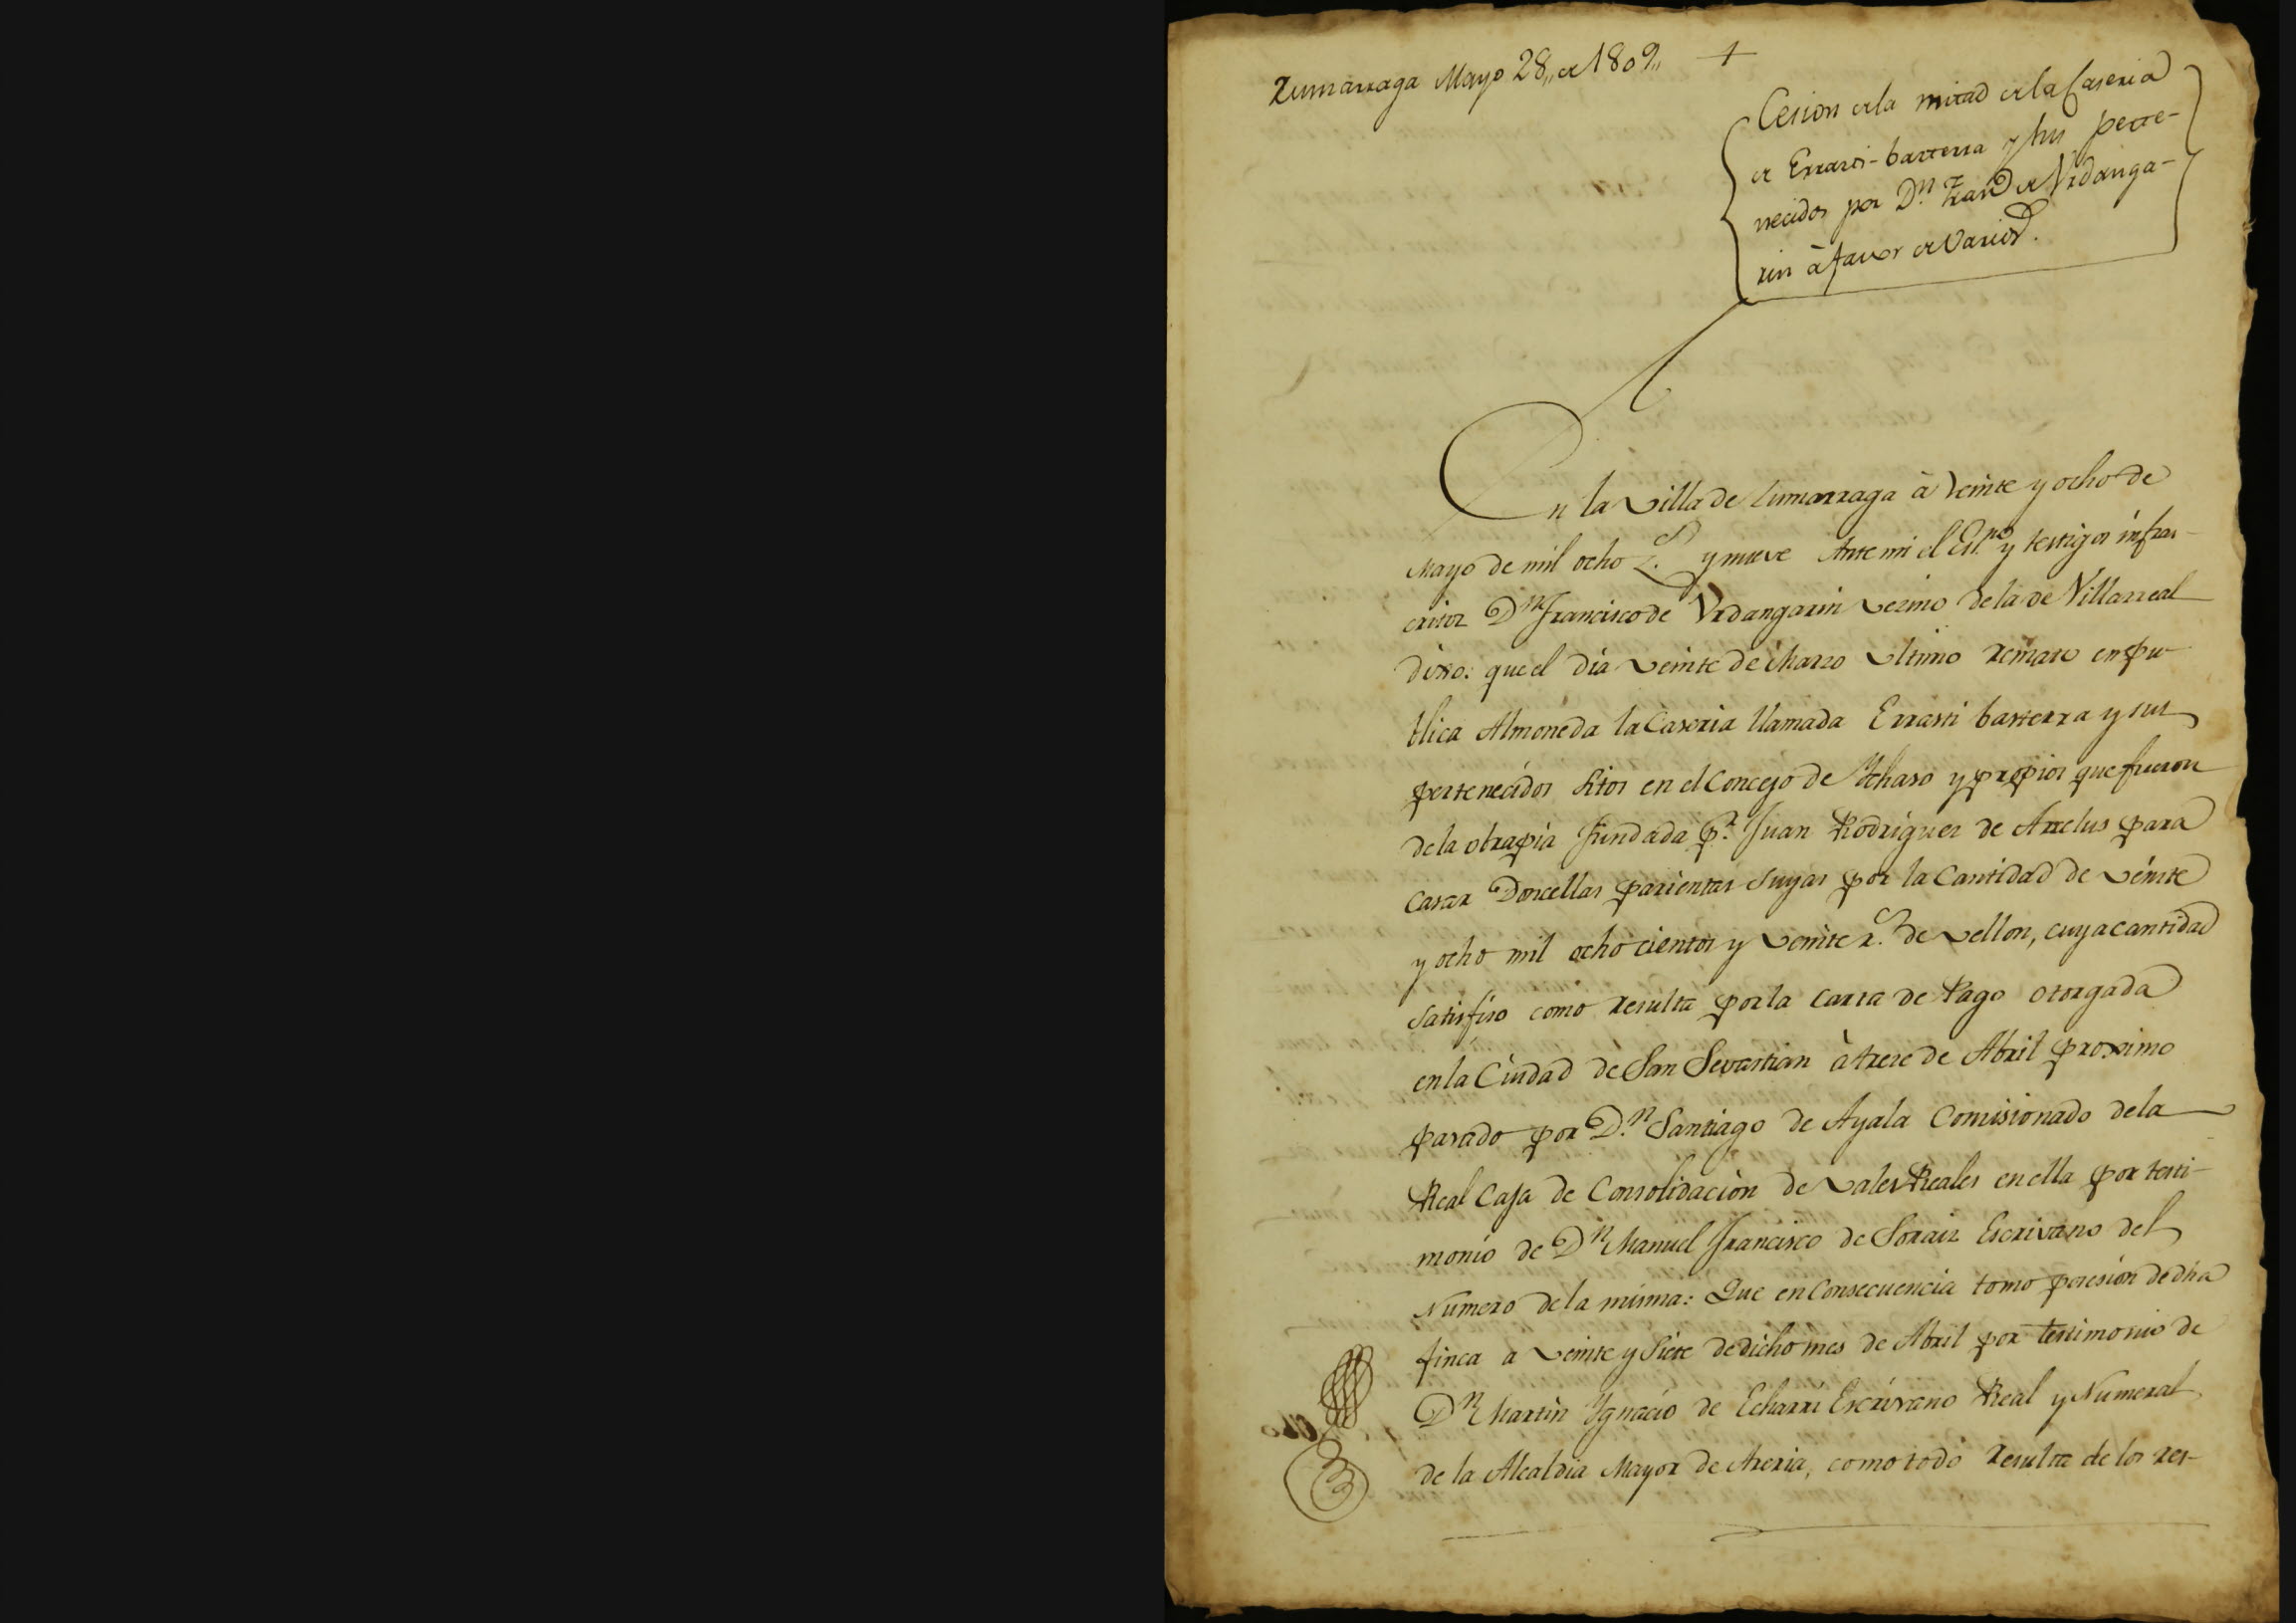 Zumarraga Mayo 28,, de 1809,, +
Cesion de la mitad de la Caseria
de Errasti-basterra y sus perte-
necidos por D.n Fran.co de Vrdanga-
rin à favor de Varios.
En la Villa de Zumarraga à Veinte y ocho de
Mayo de mil ocho z.s y nueve Ante mi el Es.no y testigos infras-
critos D.n Francisco de Vrdangarin Vezino de la de Villarreal
dixo: que el dia Veinte de Marzo Vltimo Remato en Pu-
blica Almoneda la Caseria llamada Errasti basterra y sus
pertenecidos sitos en el Concejo de Ychaso y propios que fueron
de la obrapia fundada p.r Juan Rodriguez de Arrelus para
Casar Doncellas parientas suyas por la Cantidad de Veinte
y ocho mil ocho cientos y Veinte r.s de Vellon, cuya cantidad
satisfizo como Resulta por la Carta de Pago otorgada
en la Ciudad de San Sevastian à treze de Abril proximo
pasado por D.n Santiago de Ayala Comisionado de la
Real Caja de Consolidacion de Vales Reales en ella por testi-
monio de D.n Manuel Francisco de Soraiz Escrivano del
Numero de la misma: Que en Consecuencia tomo posesion de dha
finca a Veinte y siete de dicho mes de Abril por testimonio de
D.n Martin Ygnacio de Echarri Escrivano Real y Numeral
de la Alcaldia Mayor de Areria, como todo Resulta de los res-